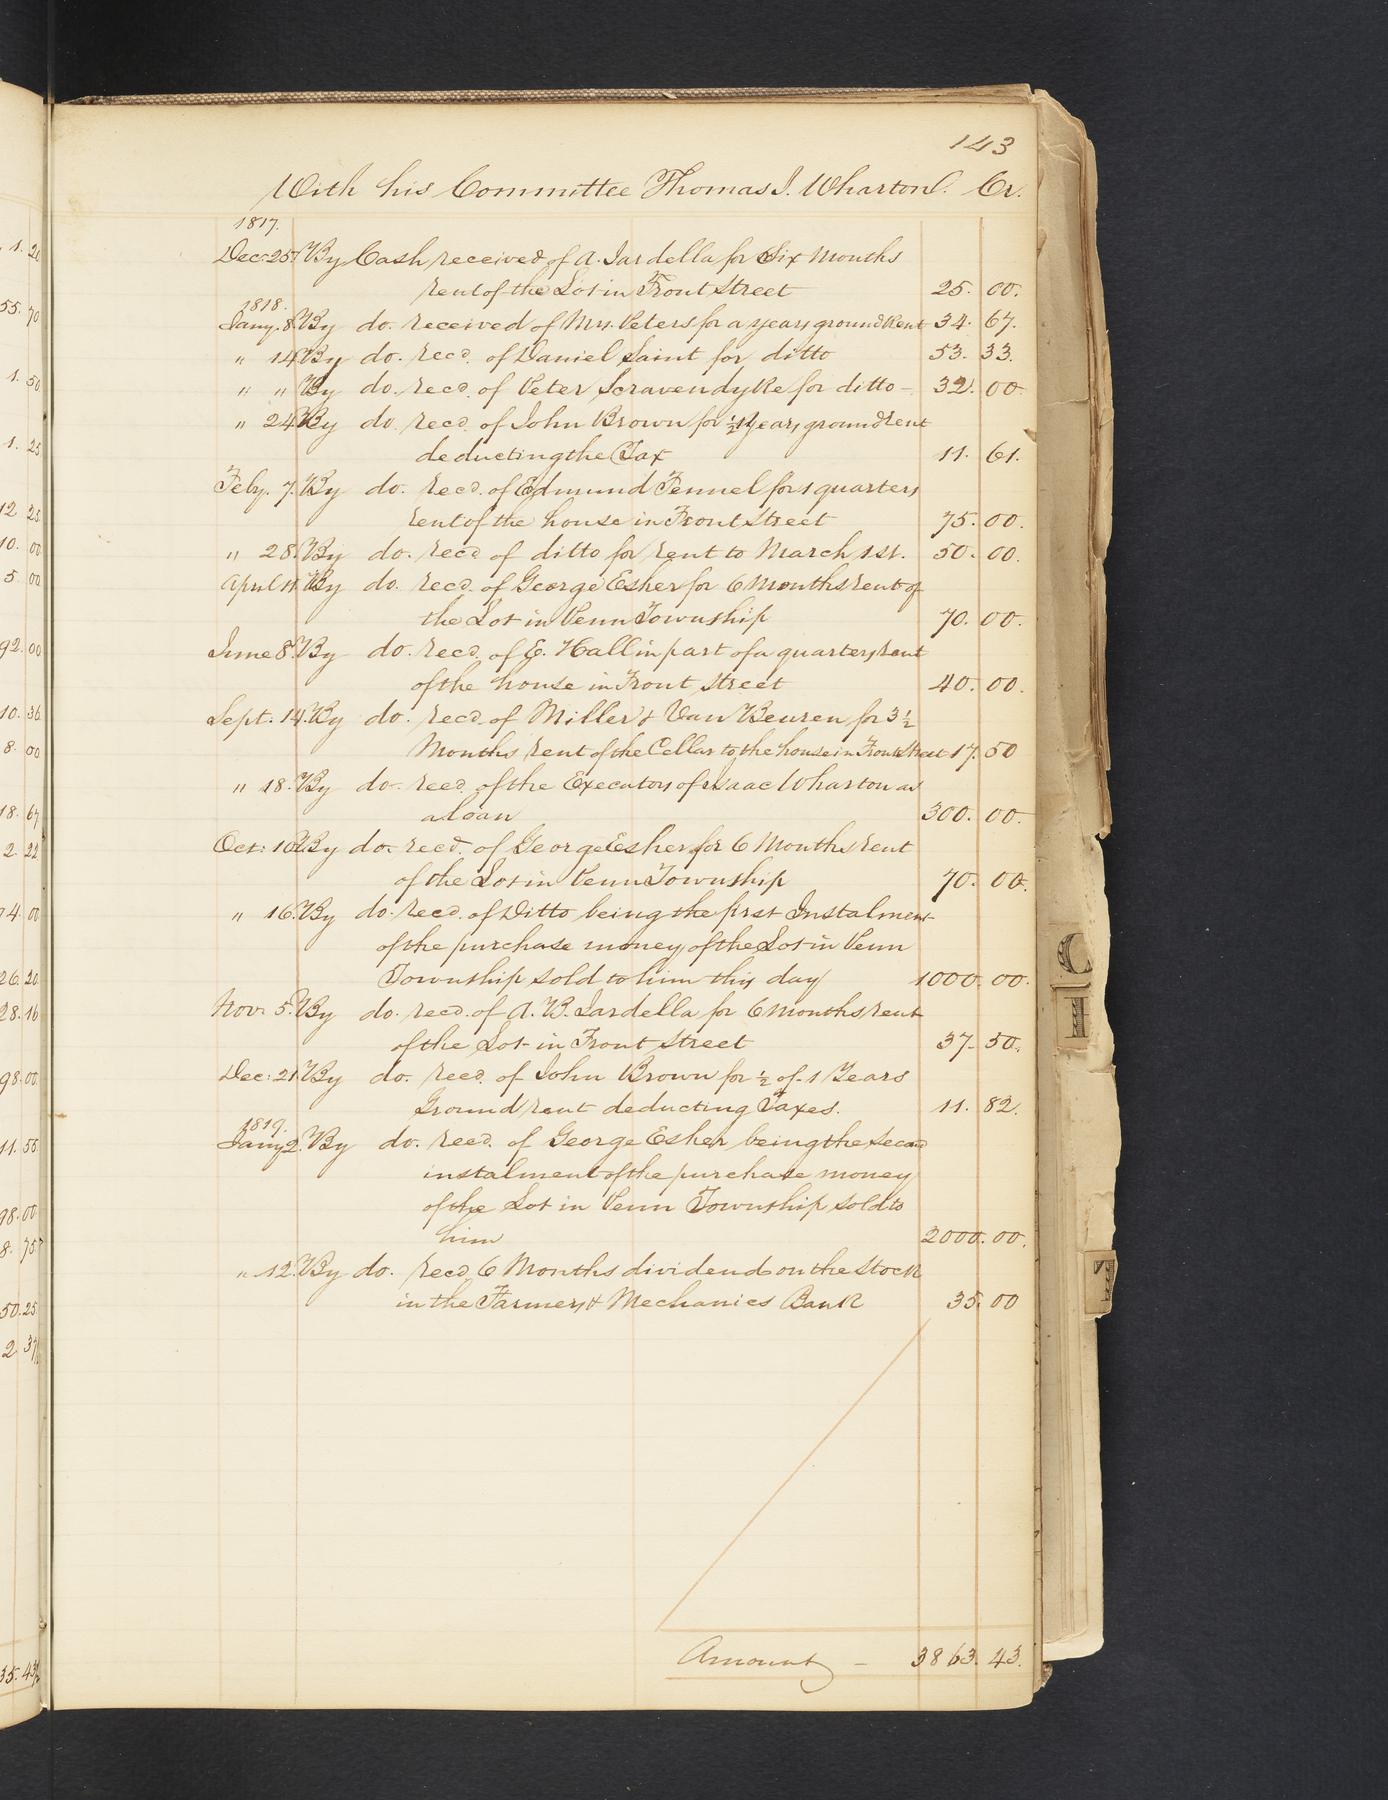 143
With his Committee Thomas I. Wharton. Cr.
1817.
Dec: 25. By Cash received of A. Iardella for Six Months
rent of the Lot in Front Street 25. 00.
1818.
Jany. 8. By do. received of Mrs. Peters for a years ground Rent 34. 67.
" 14 By do. recd. of Daniel Saint for ditto 53. 33.
" " By do. recd. of Peter Scravendyke for ditto - 32. 00
" 24 By do. recd. of John Brown for ½ years ground rent
deducting the Tax 11. 61.
Feby. 7. By do. recd. of Edmund Fennel for 1 quarters
rent of the house in Front Street 75. 00.
" 28. By do. recd. of ditto for rent to March 1st. 50. 00.
April 11. By do. recd. of George Esher for 6 Months rent of
the Lot in Penn Township 70. 00.
June 8. By do. recd. of E. Hall in part of a quarters rent
of the house in Front Street 40. 00.
Sept: 14. By do. recd. of Miller & Van Beuren for 3 ½
Months rent of the Cellar to the house in Front Street 17. 50
" 18. By do. recd. of the Executors of Isaac Wharton as
a loan 300. 00.
Oct: 10. By do. recd. of George Esher for 6 Months rent
of the Lot in Penn Township 70. 00.
" 16. By do. recd. of Ditto being the first Instalment
of the purchase money of the Lot in Penn
Township sold to him this day 1000. 00.
Nov: 5. By do. recd. of A. B. Iardella for 6 months rent
of the Lot in Front Street 37. 50.
Dec: 21. By do. recd. of John Brown for ½ of 1 Years
Ground rent deducting Taxes. 11. 82.
1819.
Jany 2. By do. recd. of George Esher being the second
instalment of the purchase money
of the Lot in Penn Township sold to
him 2000. 00.
" 12. By do. recd 6 Months dividend on the Stock
in the Farmers & Mechanics Bank 35. 00
Amount - 3863. 43.
1. 20
55. 70
1. 50
1. 25
12 25
10. 00
5. 00
92. 00
10. 36
8. 00
18. 67
2. 22
74. 00
26. 20
28. 16
98. 00
11. 55
98. 00
8. 75
50. 25
2. 37
35. 43
C
I
T